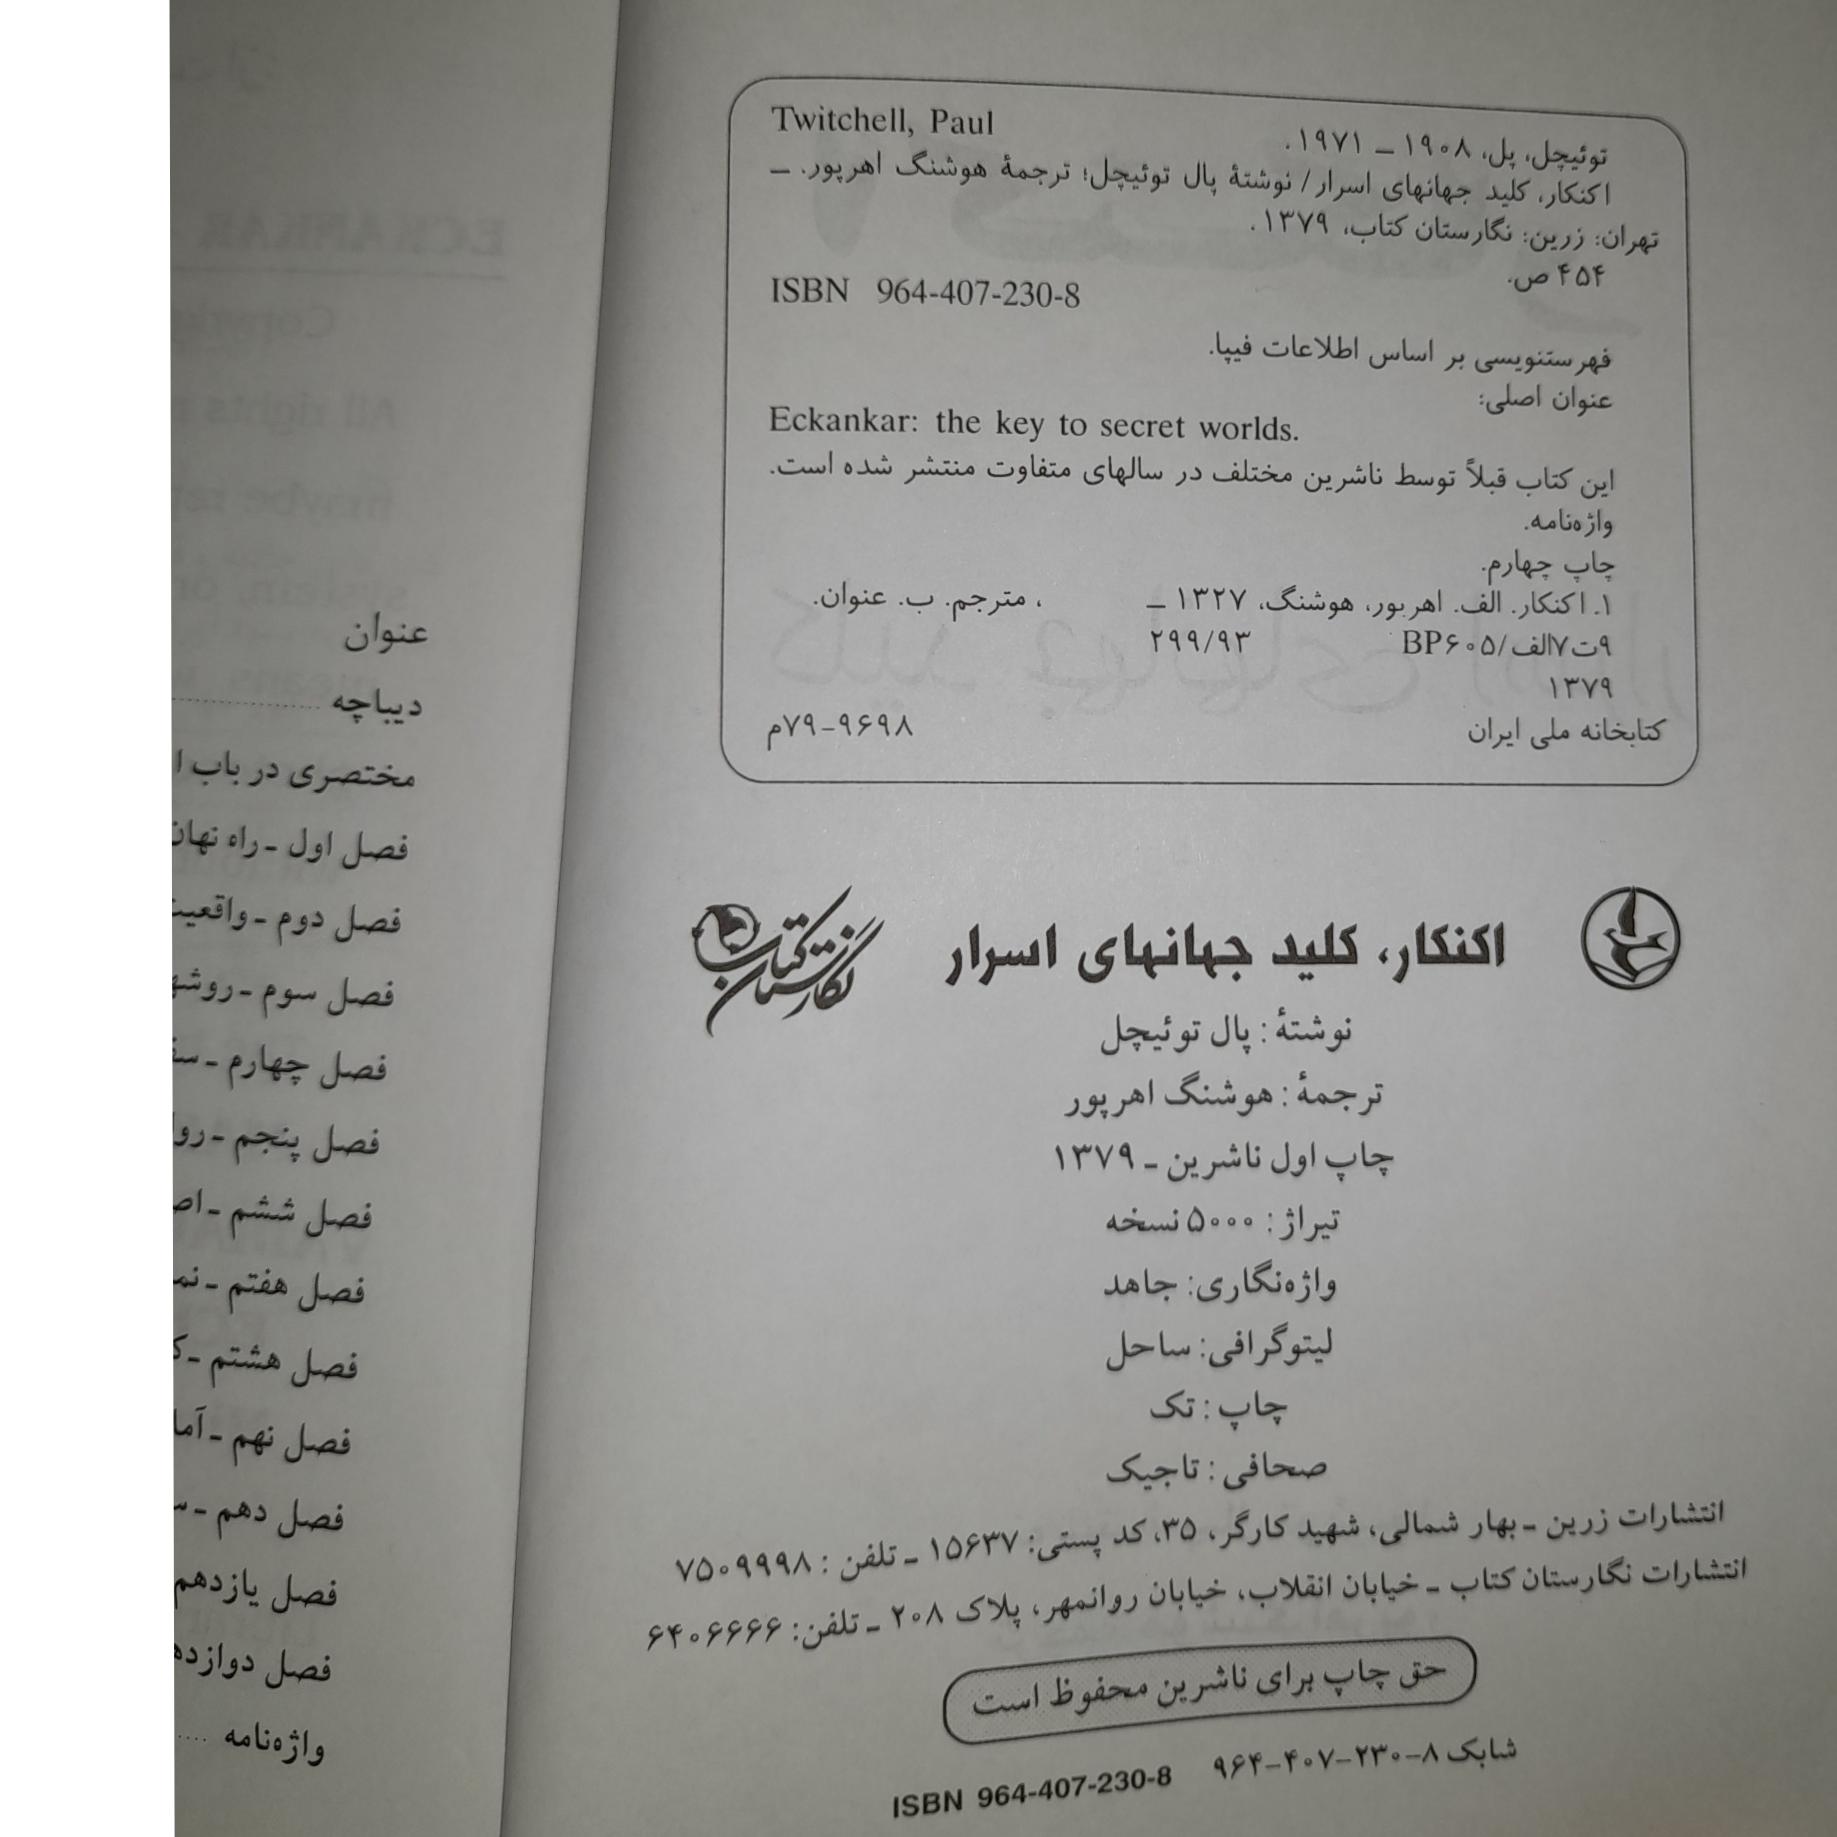 Twitchell, Paul
توئیچل، پل، ۱۹۰۸ ـ ۱۹۷۱.
اکنکار، کلید جهانهای اسرار / نوشتهٔ پال توئیچل؛ ترجمهٔ هوشنگ اهرپور. ـ
تهران: زرین: نگارستان کتاب، ۱۳۷۹.
۴۵۴ ص.
ISBN 964-407-230-8
فهرستنویسی بر اساس اطلاعات فیپا.
عنوان اصلی:
Eckankar: the key to secret worlds.
این کتاب قبلاً توسط ناشرین مختلف در سالهای متفاوت منتشر شده است.
واژه‌نامه.
چاپ چهارم.
۱. اکنکار. الف. اهرپور، هوشنگ، ۱۳۲۷ ـ ، مترجم. ب. عنوان.
۹ت۷الف/BP۶۰۵ ۲۹۹/۹۳
۱۳۷۹
کتابخانه ملی ایران ۹۶۹۸-۷۹م
اکنکار، کلید جهانهای اسرار
نگارستان کتاب
نوشتهٔ : پال توئیچل
ترجمهٔ : هوشنگ اهرپور
چاپ اول ناشرین ـ ۱۳۷۹
تیراژ : ۵۰۰۰ نسخه
واژه‌نگاری: جاهد
لیتوگرافی: ساحل
چاپ : تک
صحافی : تاجیک
انتشارات زرین ـ بهار شمالی، شهید کارگر، ۳۵، کد پستی: ۱۵۶۳۷ ـ تلفن : ۷۵۰۹۹۹۸
انتشارات نگارستان کتاب ـ خیابان انقلاب، خیابان روانمهر، پلاک ۲۰۸ ـ تلفن: ۶۴۰۶۶۶۶
حق چاپ برای ناشرین محفوظ است
شابک ۸-۲۳۰-۴۰۷-۹۶۴ ISBN 964-407-230-8
عنوان
دیباچه
مختصری در باب
فصل اول ـ راه نهان
فصل دوم ـ واقعیت
فصل سوم ـ
فصل چهارم ـ
فصل پنجم ـ
فصل ششم ـ
فصل هفتم ـ
فصل هشتم ـ
فصل نهم ـ
فصل دهم ـ
فصل یازدهم
فصل
واژه‌نامه